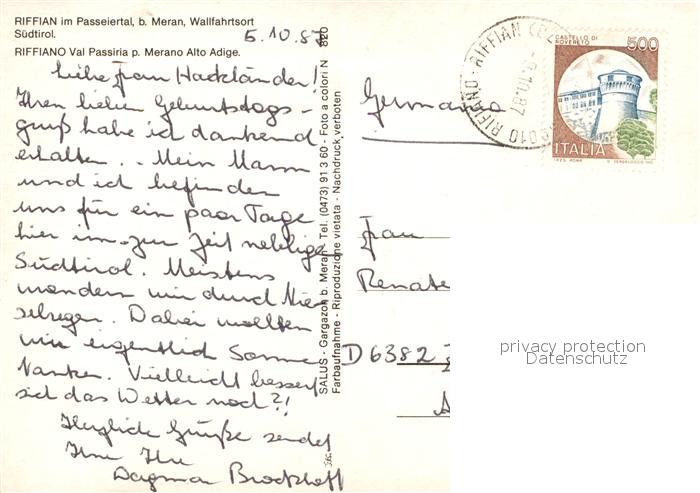 RIFFIAN im Passeiertal, b. Meran, Wallfahrtsort
Südtirol.
RIFFIANO Val Passiria p. Merano Alto Adige.
5.10.87
Liebe Frau Hackländer!
Ihren lieben Geburtstags
gruß habe ich dankend
erhalten. - Mein Mann
und ich befinden
uns für ein paar Tage
hier im zur Zeit neblige
Südtirol. Meistens
wandern wir durch Nie
selregen. Dabei wollten
wir eigentlich Sonne
tanken. Vielleicht bessert
sich das Wetter noch?!
Herzliche Grüße sendet
Ihnen Ihre
Dagmar Brockhoff
SALUS - Gargazon b. Meran - Tel. (0473) 91 3 60 - Foto a colori N 820
Farbaufnahme - Riproduzione vietata - Nachdruck verboten
Germania
Frau
Renate
D 6382
RIFIANO - RIFFIAN
10.87
CASTELLO DI
ROVERETO
500
ITALIA
I.P.Z.S. ROMA
privacy protection
Datenschutz